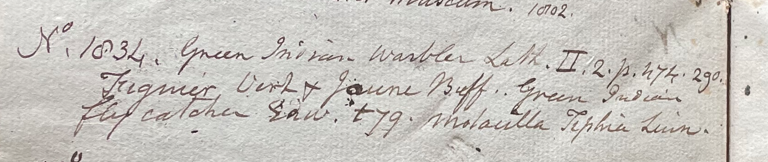 Museum. 1802.
No. 1834. Green Indian Warbler Lath. II. 2. p. 474. 290.
Figuier Vert & Jaune Buff.. Green Indian
fly catcher Edw. t 79. Motacilla Tiphia Linn.